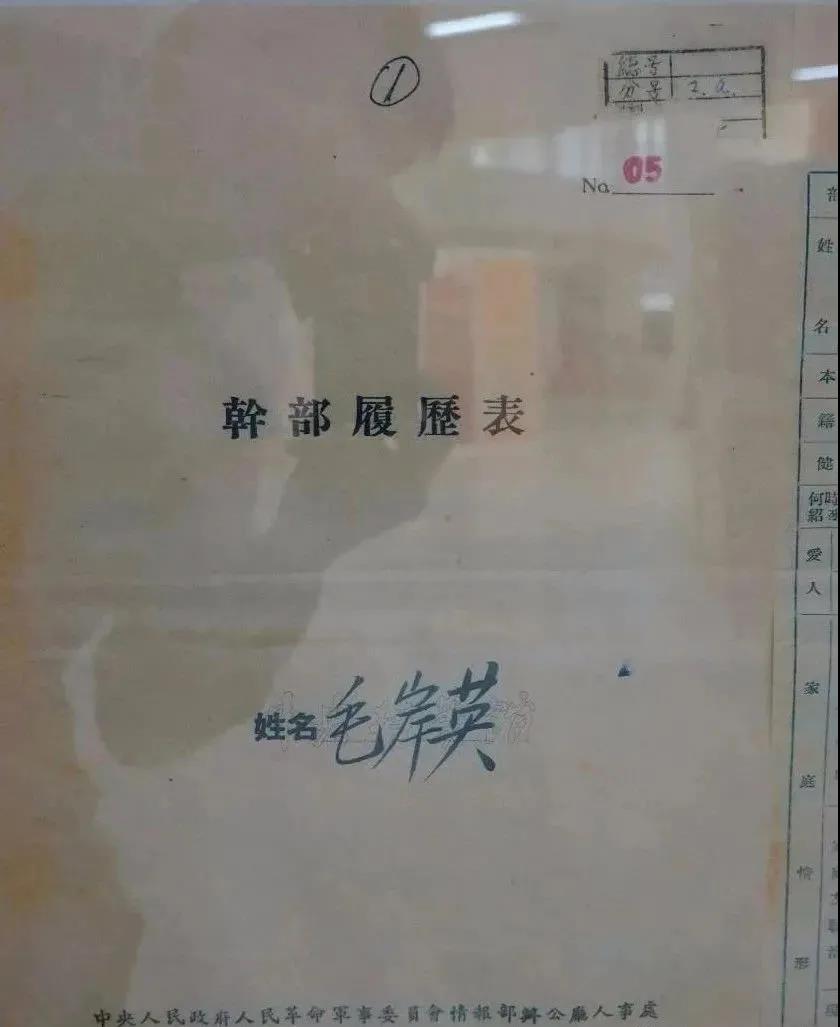 ①
總号
分号 2.a.
No. 05
幹部履歷表
姓名 毛岸英
中央人民政府人民革命軍事委員會情報部辦公廳人事處
姓
名
本
籍
健
何時
紹
愛
人
家
庭
情
形